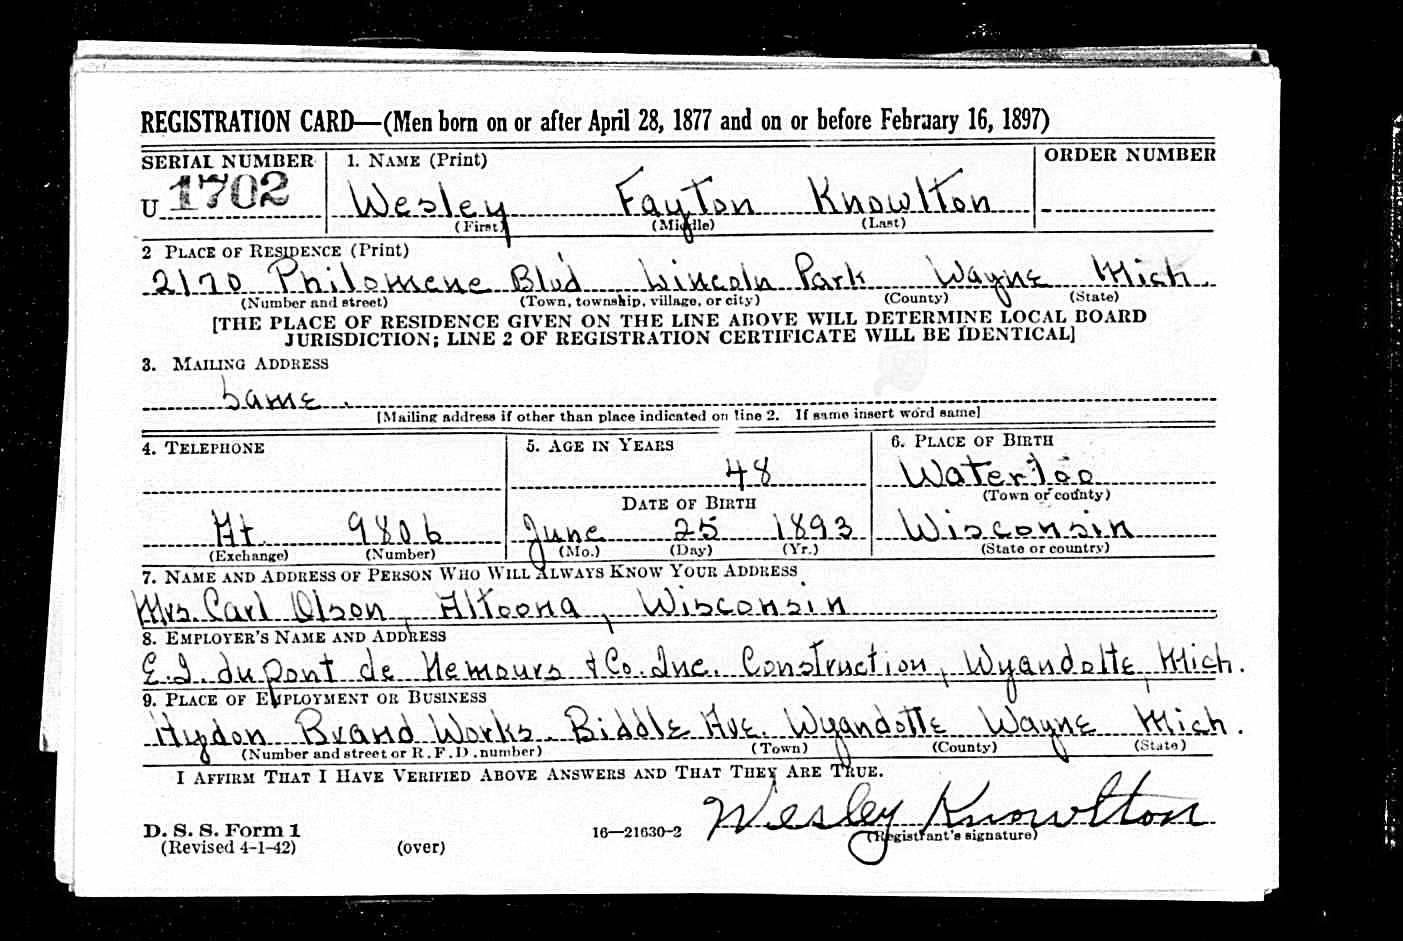 REGISTRATION CARD—(Men born on or after April 28, 1877 and on or before February 16, 1897)
SERIAL NUMBER 1. NAME (Print) ORDER NUMBER
U 1702 Wesley Fayton Knowlton
(First) (Middle) (Last)
2 PLACE OF RESIDENCE (Print)
2170 Philomene Blvd Lincoln Park Wayne Mich.
(Number and street) (Town, township, village, or city) (County) (State)
[THE PLACE OF RESIDENCE GIVEN ON THE LINE ABOVE WILL DETERMINE LOCAL BOARD
JURISDICTION; LINE 2 OF REGISTRATION CERTIFICATE WILL BE IDENTICAL]
3. MAILING ADDRESS
Same.
[Mailing address if other than place indicated on line 2. If same insert word same]
4. TELEPHONE 5. AGE IN YEARS 6. PLACE OF BIRTH
48 Waterloo
DATE OF BIRTH (Town or county)
At. 9806 June 25 1893 Wisconsin
(Exchange) (Number) (Mo.) (Day) (Yr.) (State or country)
7. NAME AND ADDRESS OF PERSON WHO WILL ALWAYS KNOW YOUR ADDRESS
Mrs. Carl Olson, Altoona, Wisconsin
8. EMPLOYER'S NAME AND ADDRESS
E.I. duPont de Nemours & Co. Inc. Construction, Wyandotte, Mich.
9. PLACE OF EMPLOYMENT OR BUSINESS
Hydon Brand Works. Biddle Ave. Wyandotte Wayne Mich.
(Number and street or R. F. D. number) (Town) (County) (State)
I AFFIRM THAT I HAVE VERIFIED ABOVE ANSWERS AND THAT THEY ARE TRUE.
Wesley Knowlton
D. S. S. Form 1 16—21630-2 (Registrant's signature)
(Revised 4-1-42) (over)